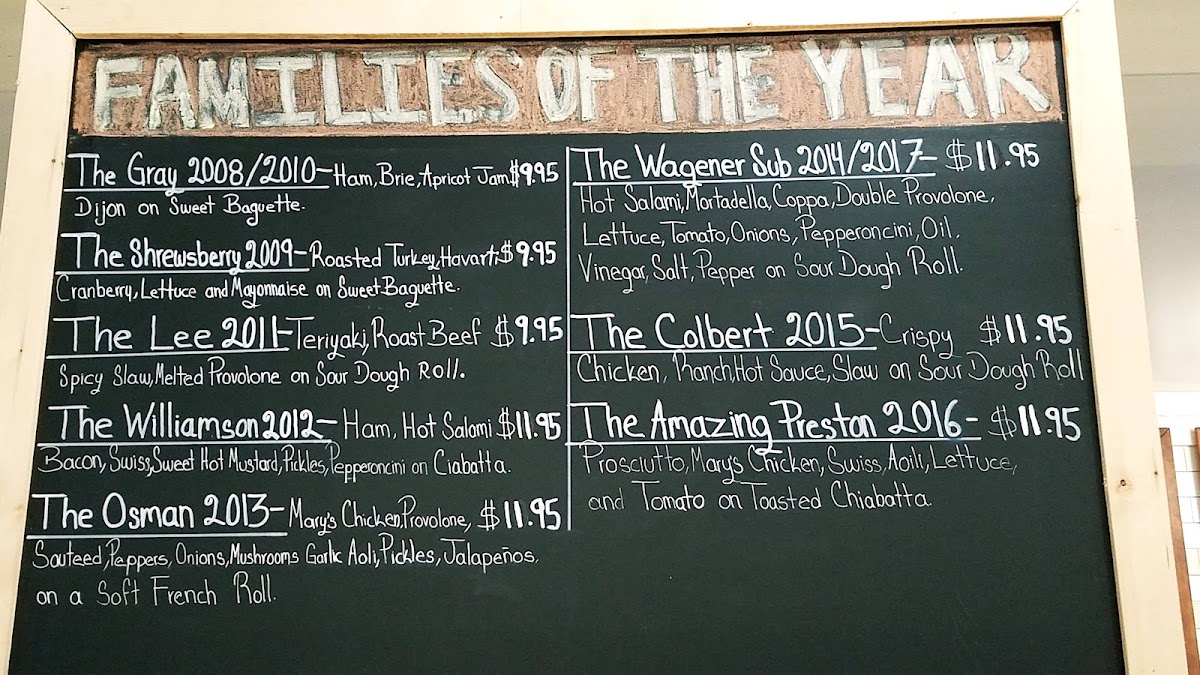 FAMILIES OF THE YEAR
The Gray 2008/2010- Ham, Brie, Apricot Jam $9.95
Dijon on Sweet Baguette.
The Shrewsberry 2009- Roasted Turkey, Havarti $9.95
Cranberry, Lettuce and Mayonnaise on Sweet Baguette.
The Lee 2011- Teriyaki, Roast Beef $9.95
Spicy Slaw, Melted Provolone on Sour Dough Roll.
The Williamson 2012- Ham, Hot Salami $11.95
Bacon, Swiss, Sweet Hot Mustard, Pickles, Pepperoncini on Ciabatta.
The Osman 2013- Mary's Chicken, Provolone, $11.95
Sauteed, Peppers, Onions, Mushrooms Garlic Aoli, Pickles, Jalapeños,
on a Soft French Roll.
The Wagener Sub 2014/2017- $11.95
Hot Salami, Martadella, Coppa, Double Provolone,
Lettuce, Tomato, Onions, Pepperoncini, Oil,
Vinegar, Salt, Pepper on Sour Dough Roll.
The Colbert 2015- Crispy $11.95
Chicken, Ranch, Hot Sauce, Slaw on Sour Dough Roll
The Amazing Preston 2016- $11.95
Prosciutto, Mary's Chicken, Swiss, Aoili, Lettuce,
and Tomato on Toasted Chiabatta.